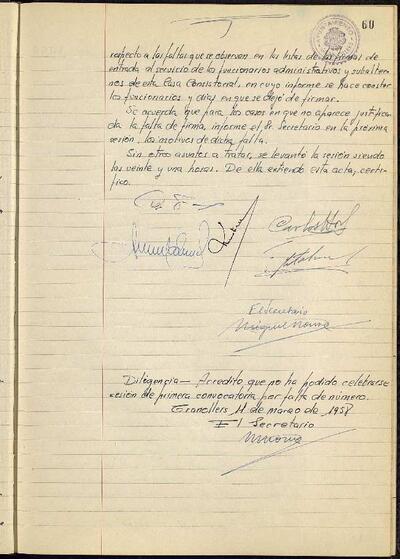 60
respecto a las faltas que se observen en las listas de las firmas de
entrada al servicio de los funcionarios administrativos y subalter-
nos de esta Casa Consistorial, en cuyo informe se hace constar
los funcionarios y días en que se dejó de firmar.
Se acuerda que para los casos en que no aparece justifica-
da la falta de firma, informe el Sr. Secretario en la próxima
sesión, los motivos de dicha falta.
Sin otros asuntos a tratar, se levantó la sesión siendo
las veinte y una horas. De ella extiendo esta acta, certi-
fico.
El Secretario
Diligencia — Acredito que no ha podido celebrarse
sesión de primera convocatoria por falta de número.
Granollers, 11 de marzo de 1958
El Secretario